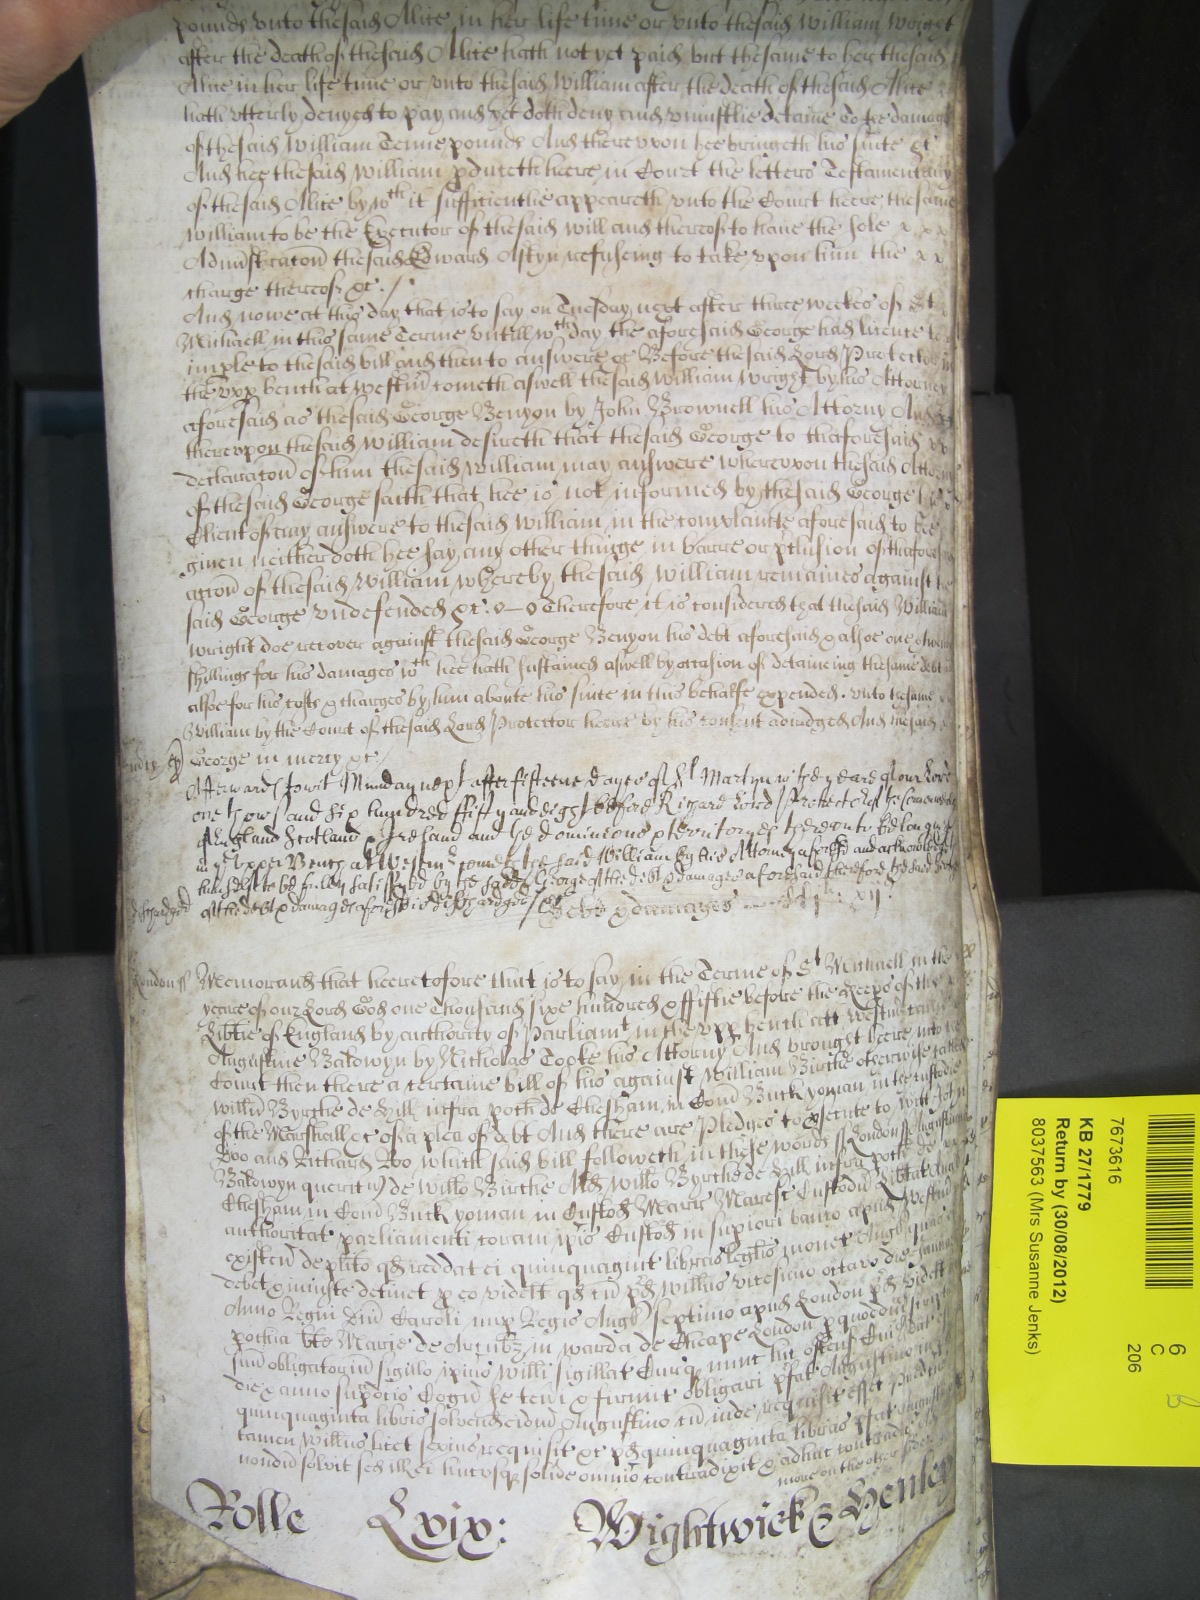 pounds unto thesaid Alice in her life time or unto thesaid William Wright
after the death of thesaid Alice hath not yet paid but thesame to her thesaid
Alice in her life time or unto thesaid William after the death of thesaid Alice
hath utterly denyed to pay and yet doth deny and uniustlie detaine To the damage
of thesaid William Tenne pounds And thereupon hee bringeth his suite &c
And hee thesaid William pduceth heere in Court the letters Testamentary
of thesaid Alice by wth it sufficientlie appeareth unto the Court heere thesaid
William to be the Executor of thesaid will and thereof to have the sole x x x
Administracon thesaid Edward Astyn refuseing to take upon him the x x
charge thereof &c. /
And nowe at this day that is to say on Tuesday next after three weekes of St
Michaell in this same Terme untill wth day the aforesaid George had licence to
imple to thesaid bill and then to answere &c Before thesaid Lord Protector in
the upp bench at Westm cometh aswell thesaid William Wright by his Attorney
aforesaid as thesaid George Benyon by John Brownell his Attorny And
thereupon thesaid William desireth that thesaid George to thaforesaid
declaracon of him thesaid William may answere whereupon thesaid Attorny
of thesaid George saith that hee is not informed by thesaid George his
Client of any answere to thesaid William in the complainte aforesaid to bee
given neither doth hee say any other thinge in barre or pclusion of thaforesaid
accon of thesaid William whereby thesaid William remaines against the
said George undefended &c. Therefore it is considered that thesaid William
Wright doe recover against thesaid George Benyon his debt aforesaid & alsoe one &
shillings for his damages wth hee hath susteined aswell by occasion of detaineing thesame debt
alsoe for his costs & charges by him aboute his suite in this behalfe expended. unto thesame
William by the Court of thesaid Lord Protector heere by his consent adiudged And thesaid
George in mercy &c /
Afterward towit Munday next after fifteene dayes of St Martyn in the yeare of our Lord
one thowsand six hundred fifty and eight before Richard Lord Protector of the Comonwealth
of England Scotland & Ireland and the dominions & territoryes thereunto belonging
in the Upper Bench at Westmr cometh the said William by his Attorney aforesaid and acknowledgeth
himselfe to be fully satisfyed by the said George of the debt & damages aforesaid therefore the said George
discharged
of the debt & damages aforesaid is discharged / Debt & damages xij
London ss Memorand that heeretofore that is to say in the Terme of St Michaell in the
yeare of our Lord God one Thousand sixe hundred & fiftie before the Keeps of the
Libtie of England by authority of Parliamt in the upp bench att Westm came
Augustine Baldwyn by Nicholas Cooke his Attorny And brought heere into the
Court then there a certaine bill of his against William Birthe otherwise called
Willm Byrthe de Hill infra poch de Chesham in Com Buck yoman in the custodie
of the Marshall &c of a plea of debt And there are Pledges to psecute to witt John
Doo and Richard Roo which said bill followeth in these words ss London ss Augustinus
Baldwyn querit de Willo Birthe Als Willo Byrthe de Hill infra poch de
Chesham in Com Buck yoman in Custod Marr Maresc Custodu Libtat Angl
authoritat parliamenti coram ipis Custod in supiori banco apud Westm
existen de plito qd reddat ei quinquagint libras legalis monet Angl quas ei
debet & iniuste detinet p eo videlt qd cu pd Willus vicesimo octavo die Januar
Anno Regni Dni Caroli nup Regis Angl septimo apud London pd videlt in
pochia bte Marie de Arcubz in warda de Cheape London p quoddam scriptu
suu obligatoriu sigillo ipius Willi sigillat Curieq nunc hic ostens Cui dat est
die & anno supdcis Cogn se teneri & firmit obligari pfat Augustino in pd
quinquaginta libris solvend eidm Augustino cu inde requisit esset Predictus
tamen Willus licet sepius requisit &c pd quinquaginta libras pfat Augustino
nondu solvit sed ill ei hucusqz solvde omnio contradixit & adhuc contradic
more on the other side
Rolle Lxix: Wightwick & Henley
7673616
KB 27/1779
Return by (30/08/2012)
8037563 (Mrs Susanne Jenks)
6
C
206